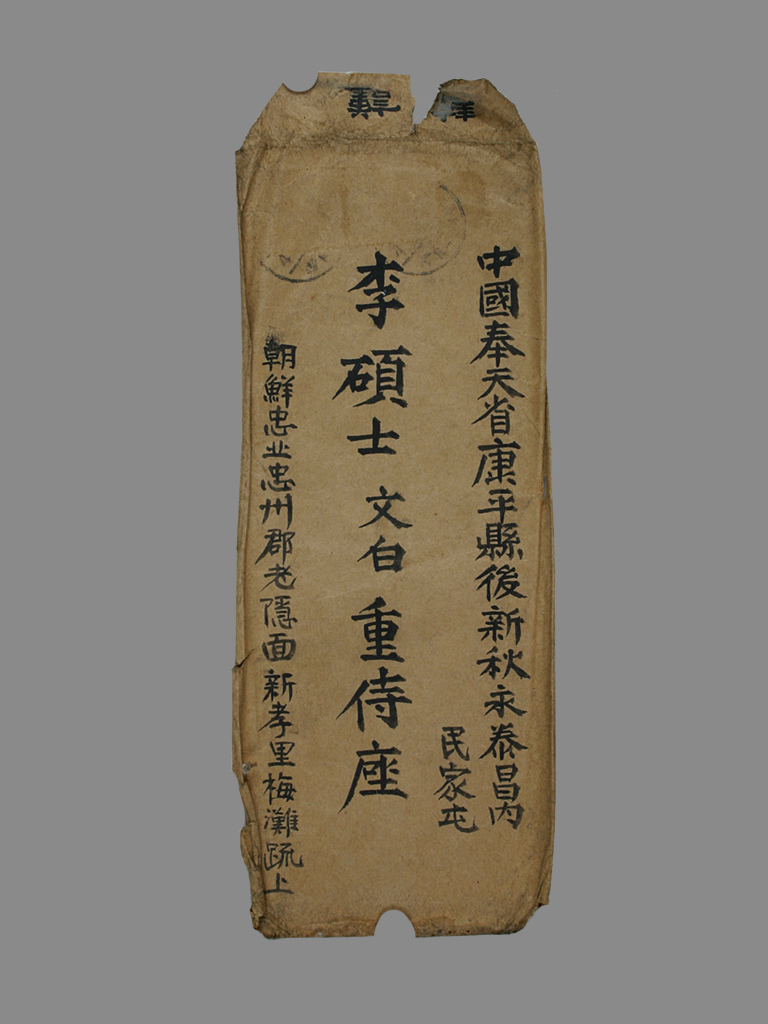 中國奉天省康平縣後新秋永泰昌內
民家屯
李碩士 文白 重侍座
朝鮮忠北忠州郡老隱面新孝里梅灘疏上